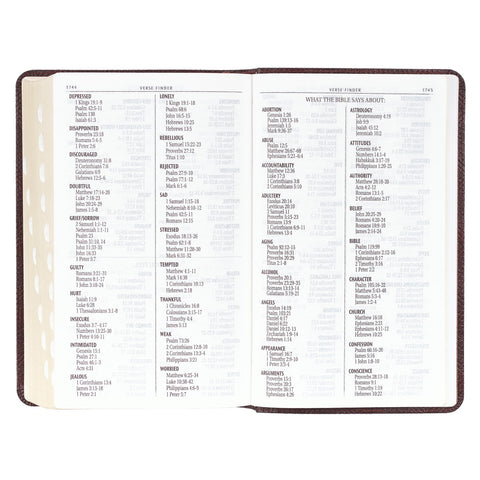 1744
VERSE FINDER
DEPRESSED
1 Kings 19:1-9
Psalm 42:5-11
Psalm 130
Isaiah 61:3
DISAPPOINTED
Proverbs 23:18
Romans 5:4-5
1 Peter 2:6
DISCOURAGED
Deuteronomy 31:8
2 Corinthians 7:6
Galatians 6:9
Hebrews 12:5-6
DOUBTFUL
Matthew 21:18-22
Luke 7:18-23
John 20:24-29
James 1:5-8
GRIEF/SORROW
2 Samuel 1:1-12
Nehemiah 1:1-11
Psalm 23
John 16:33
1 Peter 5:7
GUILTY
Romans 8:1-17
HURT
Isaiah 11:9
Luke 6:28
1 Thessalonians 3:1-8
INSECURE
Exodus 3:7-4:17
Numbers 13:25-30
Psalm 108:6
INTIMIDATED
Genesis 15:1
Psalm 27:1
1 Peter 3:6
JEALOUS
1 Corinthians 13:4
James 3:13-18
1 Peter 2:1
LONELY
1 Kings 19:1-18
Psalm 68:6
John 16:5-15
Hebrews 10:25
Hebrews 13:5
REBELLIOUS
1 Samuel 15:22-23
Proverbs 17:11
Titus 1:10
REJECTED
Psalm 27:9-10
Psalm 77:1-12
Mark 6:1-6
SAD
1 Samuel 1:1-18
Nehemiah 8:10-12
Psalm 42:5-11
STRESSED
Exodus 18:13-26
Psalm 62:1-8
Matthew 11:28-30
Mark 6:31-32
TEMPTED
Matthew 4:1-11
Mark 14:38
1 Corinthians 10:13
Hebrews 2:18
THANKFUL
1 Chronicles 16:8
Colossians 3:15-17
1 Timothy 4:4
James 5:13
WEAK
Psalm 73:26
2 Corinthians 12:8-10
2 Corinthians 13:3-4
Philippians 3:21
WORRIED
Matthew 6:25-34
Luke 10:38-42
Philippians 4:6-9
1 Peter 5:7
VERSE FINDER
1745
WHAT THE BIBLE SAYS ABOUT:
ABORTION
Genesis 1:26
Psalm 139:13-16
Jeremiah 1:5
Mark 9:36-37
ABUSE
Psalm 12:5
Ephesians 5:22-6:4
ACCOUNTABILITY
Matthew 12:36
Luke 17:3
1 Corinthians 3:8
2 Corinthians 5:10
ADULTERY
Exodus 20:14
Leviticus 20:10
2 Samuel 11
Proverbs 5:15-23
Romans 13:9
1 Corinthians 6:9-11
Hebrews 13:4
AGING
Psalm 92:12-15
Proverbs 16:31
Proverbs 20:29
Titus 2:1-8
ALCOHOL
Proverbs 20:1
Proverbs 23:29-35
Romans 13:13-14
Galatians 5:19-21
ANGELS
Exodus 23:20
Daniel 6:22
Daniel 12:1
Zechariah 1:9-14
Hebrews 1:14
APPEARANCE
1 Samuel 16:7
2 Timothy 1:9-10
1 Peter 3:3-5
ARGUMENTS
Proverbs 15:1
Proverbs 20:3
Proverbs 26:17
Ephesians 4:26
ASTROLOGY
Deuteronomy 4:19
Job 9:9
Isaiah 45:12
Jeremiah 10:2
ATTITUDES
Genesis 4:6-7
Numbers 14:1-4
Habakkuk 3:17-19
Philippians 1:20-25
AUTHORITY
Matthew 28:18-20
Acts 4:2-12
Romans 13:1-5
1 Peter 2:13-17
BELIEF
John 20:25-29
Romans 4:20-24
Romans 10:9-10
James 2:14-24
BIBLE
Psalm 119:99
1 Corinthians 2:12-16
Ephesians 6:17
2 Timothy 3:16
1 Peter 2:2
CHARACTER
Psalm 105:16-22
Matthew 5:43-48
Romans 5:3-4
James 1:2-4
CHURCH
Matthew 16:18
Ephesians 2:21
Ephesians 4:11-12
Hebrews 10:25
CONFESSION
James 5:16
1 John 1:8-10
CONSCIENCE
Proverbs 28:13-18
Romans 9:1
1 Timothy 1:19
Hebrews 10:22